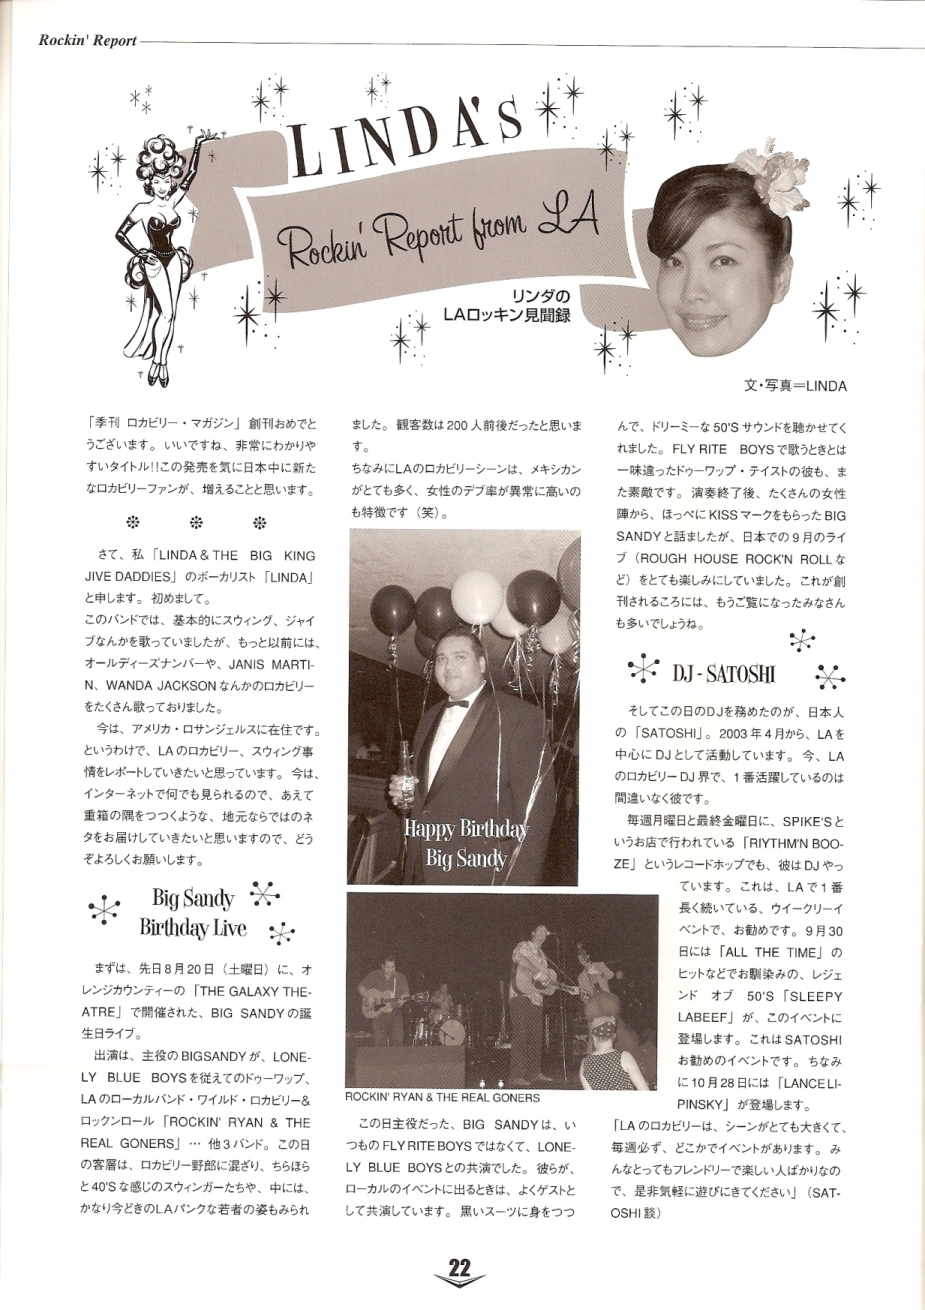 Rockin' Report
LINDA'S
Rockin' Report from LA
リンダの
LAロッキン見聞録
文・写真＝LINDA
「季刊 ロカビリー・マガジン」創刊おめでと
うございます。いいですね、非常にわかりや
すいタイトル!!この発売を気に日本中に新た
なロカビリーファンが、増えることと思います。
さて、私「LINDA & THE BIG KING
JIVE DADDIES」のボーカリスト「LINDA」
と申します。初めまして。
このバンドでは、基本的にスウィング、ジャイ
ブなんかを歌っていましたが、もっと以前には、
オールディーズナンバーや、JANIS MARTI-
N、WANDA JACKSONなんかのロカビリー
をたくさん歌っておりました。
今は、アメリカ・ロサンジェルスに在住です。
というわけで、LAのロカビリー、スウィング事
情をレポートしていきたいと思っています。今は、
インターネットで何でも見られるので、あえて
重箱の隅をつつくような、地元ならではのネ
タをお届けしていきたいと思いますので、どう
ぞよろしくお願いします。
Big Sandy
Birthday Live
まずは、先日8月20日（土曜日）に、オ
レンジカウンティーの「THE GALAXY THE-
ATRE」で開催された、BIG SANDYの誕
生日ライブ。
出演は、主役のBIGSANDYが、LONE-
LY BLUE BOYSを従えてのドゥーワップ、
LAのローカルバンド・ワイルド・ロカビリー&
ロックンロール「ROCKIN' RYAN & THE
REAL GONERS」… 他3バンド。この日
の客層は、ロカビリー野郎に混ざり、ちらほら
と40'Sな感じのスウィンガーたちや、中には、
かなり今どきのLAパンクな若者の姿もみられ
ました。観客数は200人前後だったと思いま
す。
ちなみにLAのロカビリーシーンは、メキシカン
がとても多く、女性のデブ率が異常に高いの
も特徴です（笑）。
Happy Birthday
Big Sandy
ROCKIN' RYAN & THE REAL GONERS
この日主役だった、BIG SANDYは、い
つものFLY RITE BOYSではなくて、LONE-
LY BLUE BOYSとの共演でした。彼らが、
ローカルのイベントに出るときは、よくゲストと
して共演しています。黒いスーツに身をつつ
んで、ドリーミーな50'Sサウンドを聴かせてく
れました。FLY RITE BOYSで歌うときとは
一味違ったドゥーワップ・テイストの彼も、ま
た素敵です。演奏終了後、たくさんの女性
陣から、ほっぺにKISSマークをもらったBIG
SANDYと話ましたが、日本での9月のライ
ブ（ROUGH HOUSE ROCK'N ROLLな
ど）をとても楽しみにしていました。これが創
刊されるころには、もうご覧になったみなさん
も多いでしょうね。
DJ - SATOSHI
そしてこの日のDJを務めたのが、日本人
の「SATOSHI」。2003年4月から、LAを
中心にDJとして活動しています。今、LA
のロカビリーDJ界で、1番活躍しているのは
間違いなく彼です。
毎週月曜日と最終金曜日に、SPIKE'Sと
いうお店で行われている「RIYTHM'N BOO-
ZE」というレコードホップでも、彼はDJやっ
ています。これは、LAで1番
長く続いている、ウイークリーイ
ベントで、お勧めです。9月30
日には「ALL THE TIME」の
ヒットなどでお馴染みの、レジェ
ンド オブ 50'S「SLEEPY
LABEEF」が、このイベントに
登場します。これはSATOSHI
お勧めのイベントです。ちなみ
に10月28日には「LANCE LI-
PINSKY」が登場します。
「LAのロカビリーは、シーンがとても大きくて、
毎週必ず、どこかでイベントがあります。み
んなとってもフレンドリーで楽しい人ばかりなの
で、是非気軽に遊びにきてください」（SAT-
OSHI談）
22